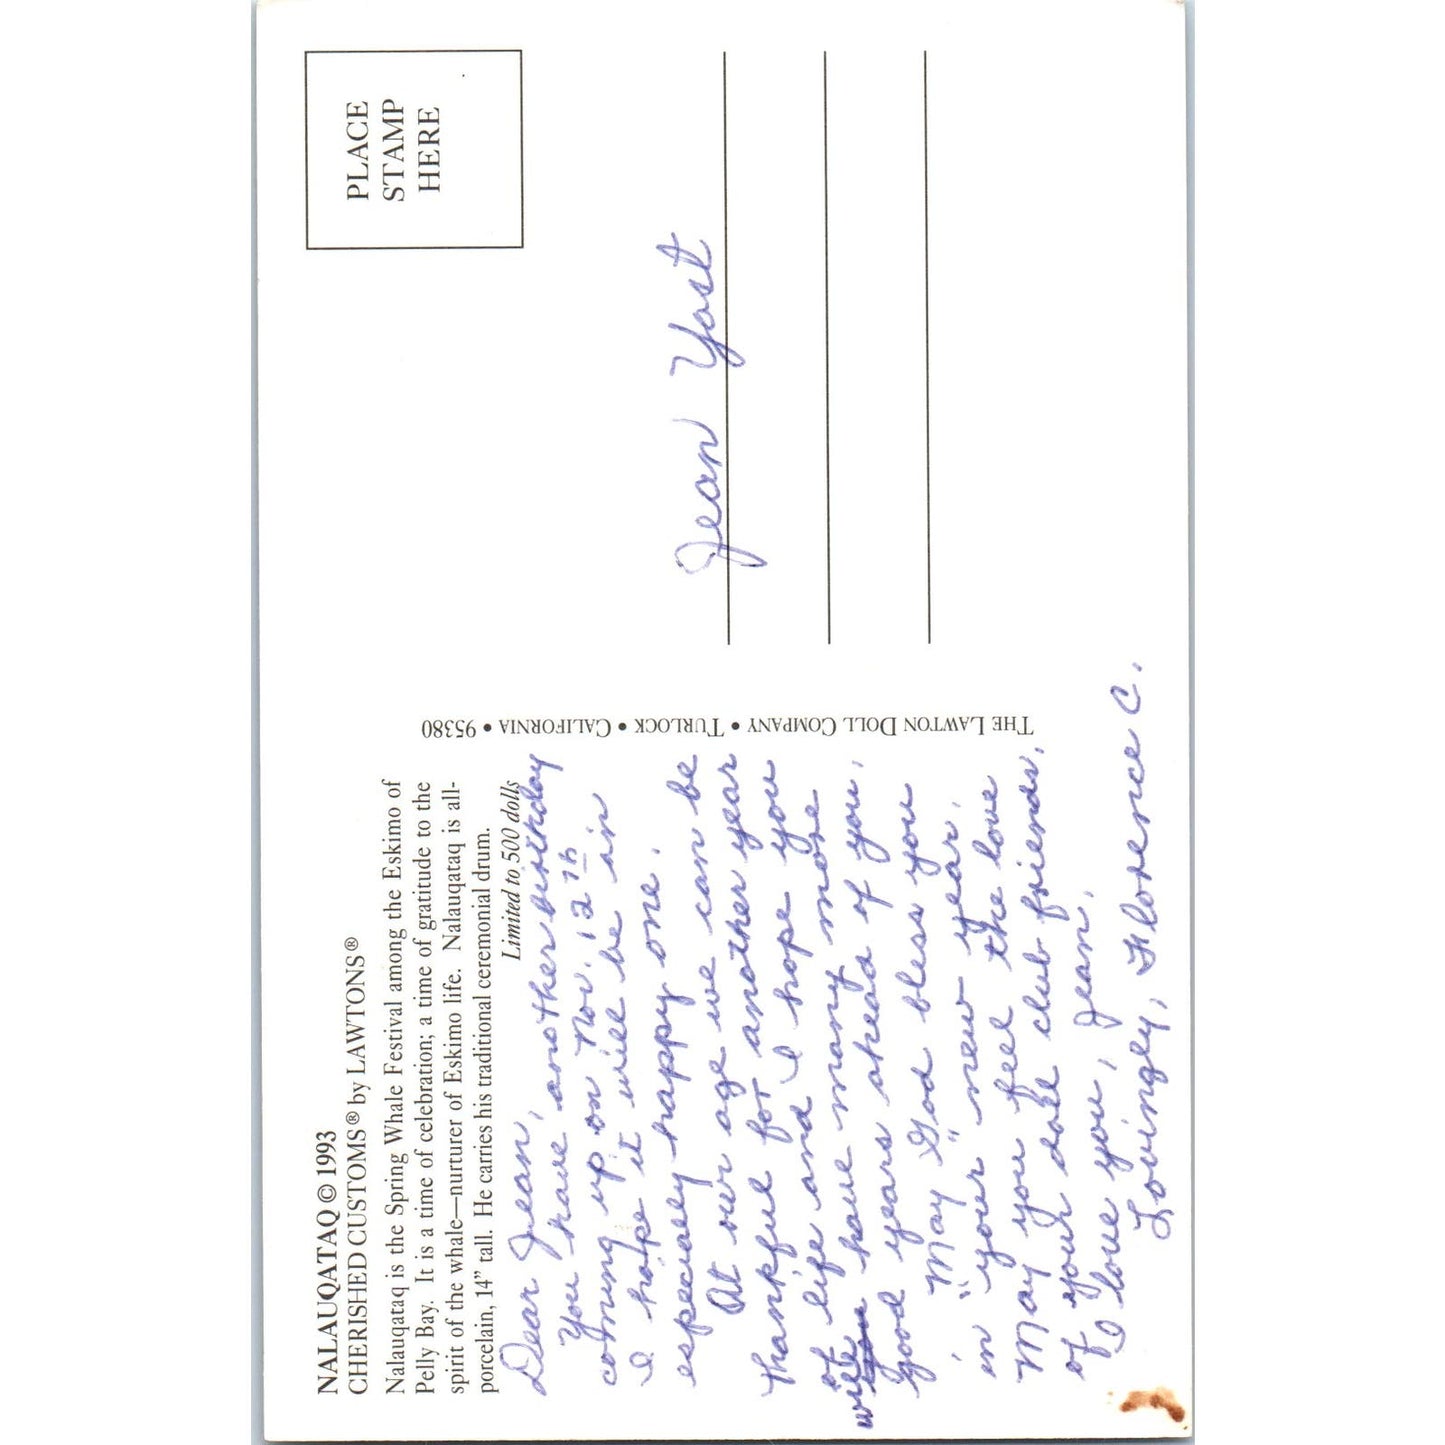 NALAUQATAQ © 1993
CHERISHED CUSTOMS® by LAWTONS®
Nalauqataq is the Spring Whale Festival among the Eskimo of
Pelly Bay. It is a time of celebration; a time of gratitude to the
spirit of the whale—nurturer of Eskimo life. Nalauqataq is all-
porcelain, 14" tall. He carries his traditional ceremonial drum.
Limited to 500 dolls
Dear Jean,
You have another birthday
coming up on Nov. 12th
I hope it will be an
especially happy one.
At our age we can be
thankful for another year
of life and I hope you
will have many more
good years ahead of you.
"May God bless you
in your new year.
May you feel the love
of your doll club friends.
I love you, Jean.
Lovingly, Florence C.
THE LAWTON DOLL COMPANY • TURLOCK • CALIFORNIA • 95380
PLACE
STAMP
HERE
Jean Yost